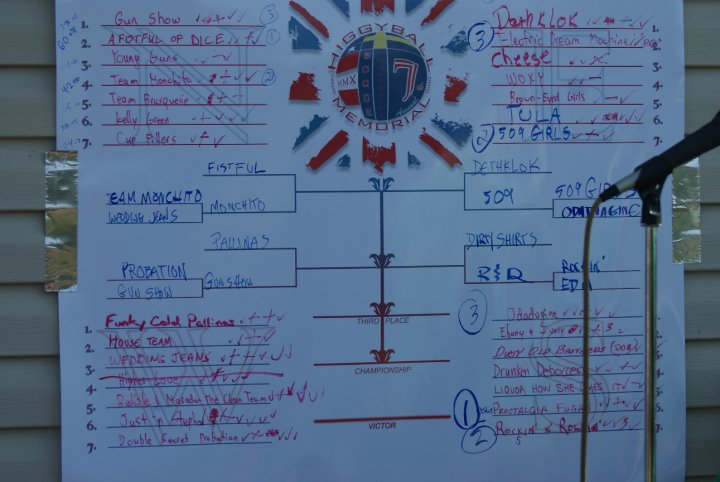 1. Gun Show
2. A FOTFUL OF DICE
3. Young Guns
4. Team Monchito
5. Team Brusquest
6. Kelly Green
7. Cup Fillers
HIGGYBALL
MMX
7
MEMORIAL
3 Dethklok 1.
Electric Dream Machine
Cheese 3.
WOXY
Brown-Eyed Girls
TULA 6.
2 509 GIRLS 7.
FISTFUL
TEAM MONCHITO
WEDDING JEANS
MONCHITO
PALLINAS
PROBATION
GUN SHOW
GUNSHOW
DETHKLOK
509
509 GIRLS
DIRTY SHIRTS
R & R
ROCKIN'
EDM
THIRD PLACE
CHAMPIONSHIP
VICTOR
1. Funky Cold Pallinas
2. HOUSE TEAM
3. WEDDING JEANS
4. Higher Love
5. The Clean Team
6. Just n Steph
7. Double Secret Probation
3
Ebony & Ivory
DIRTY OLD
Drunken
LIQUOR HOW SHE LIKES IT
1 PROCTALGIA FUGAX
2 ROCKIN' N'